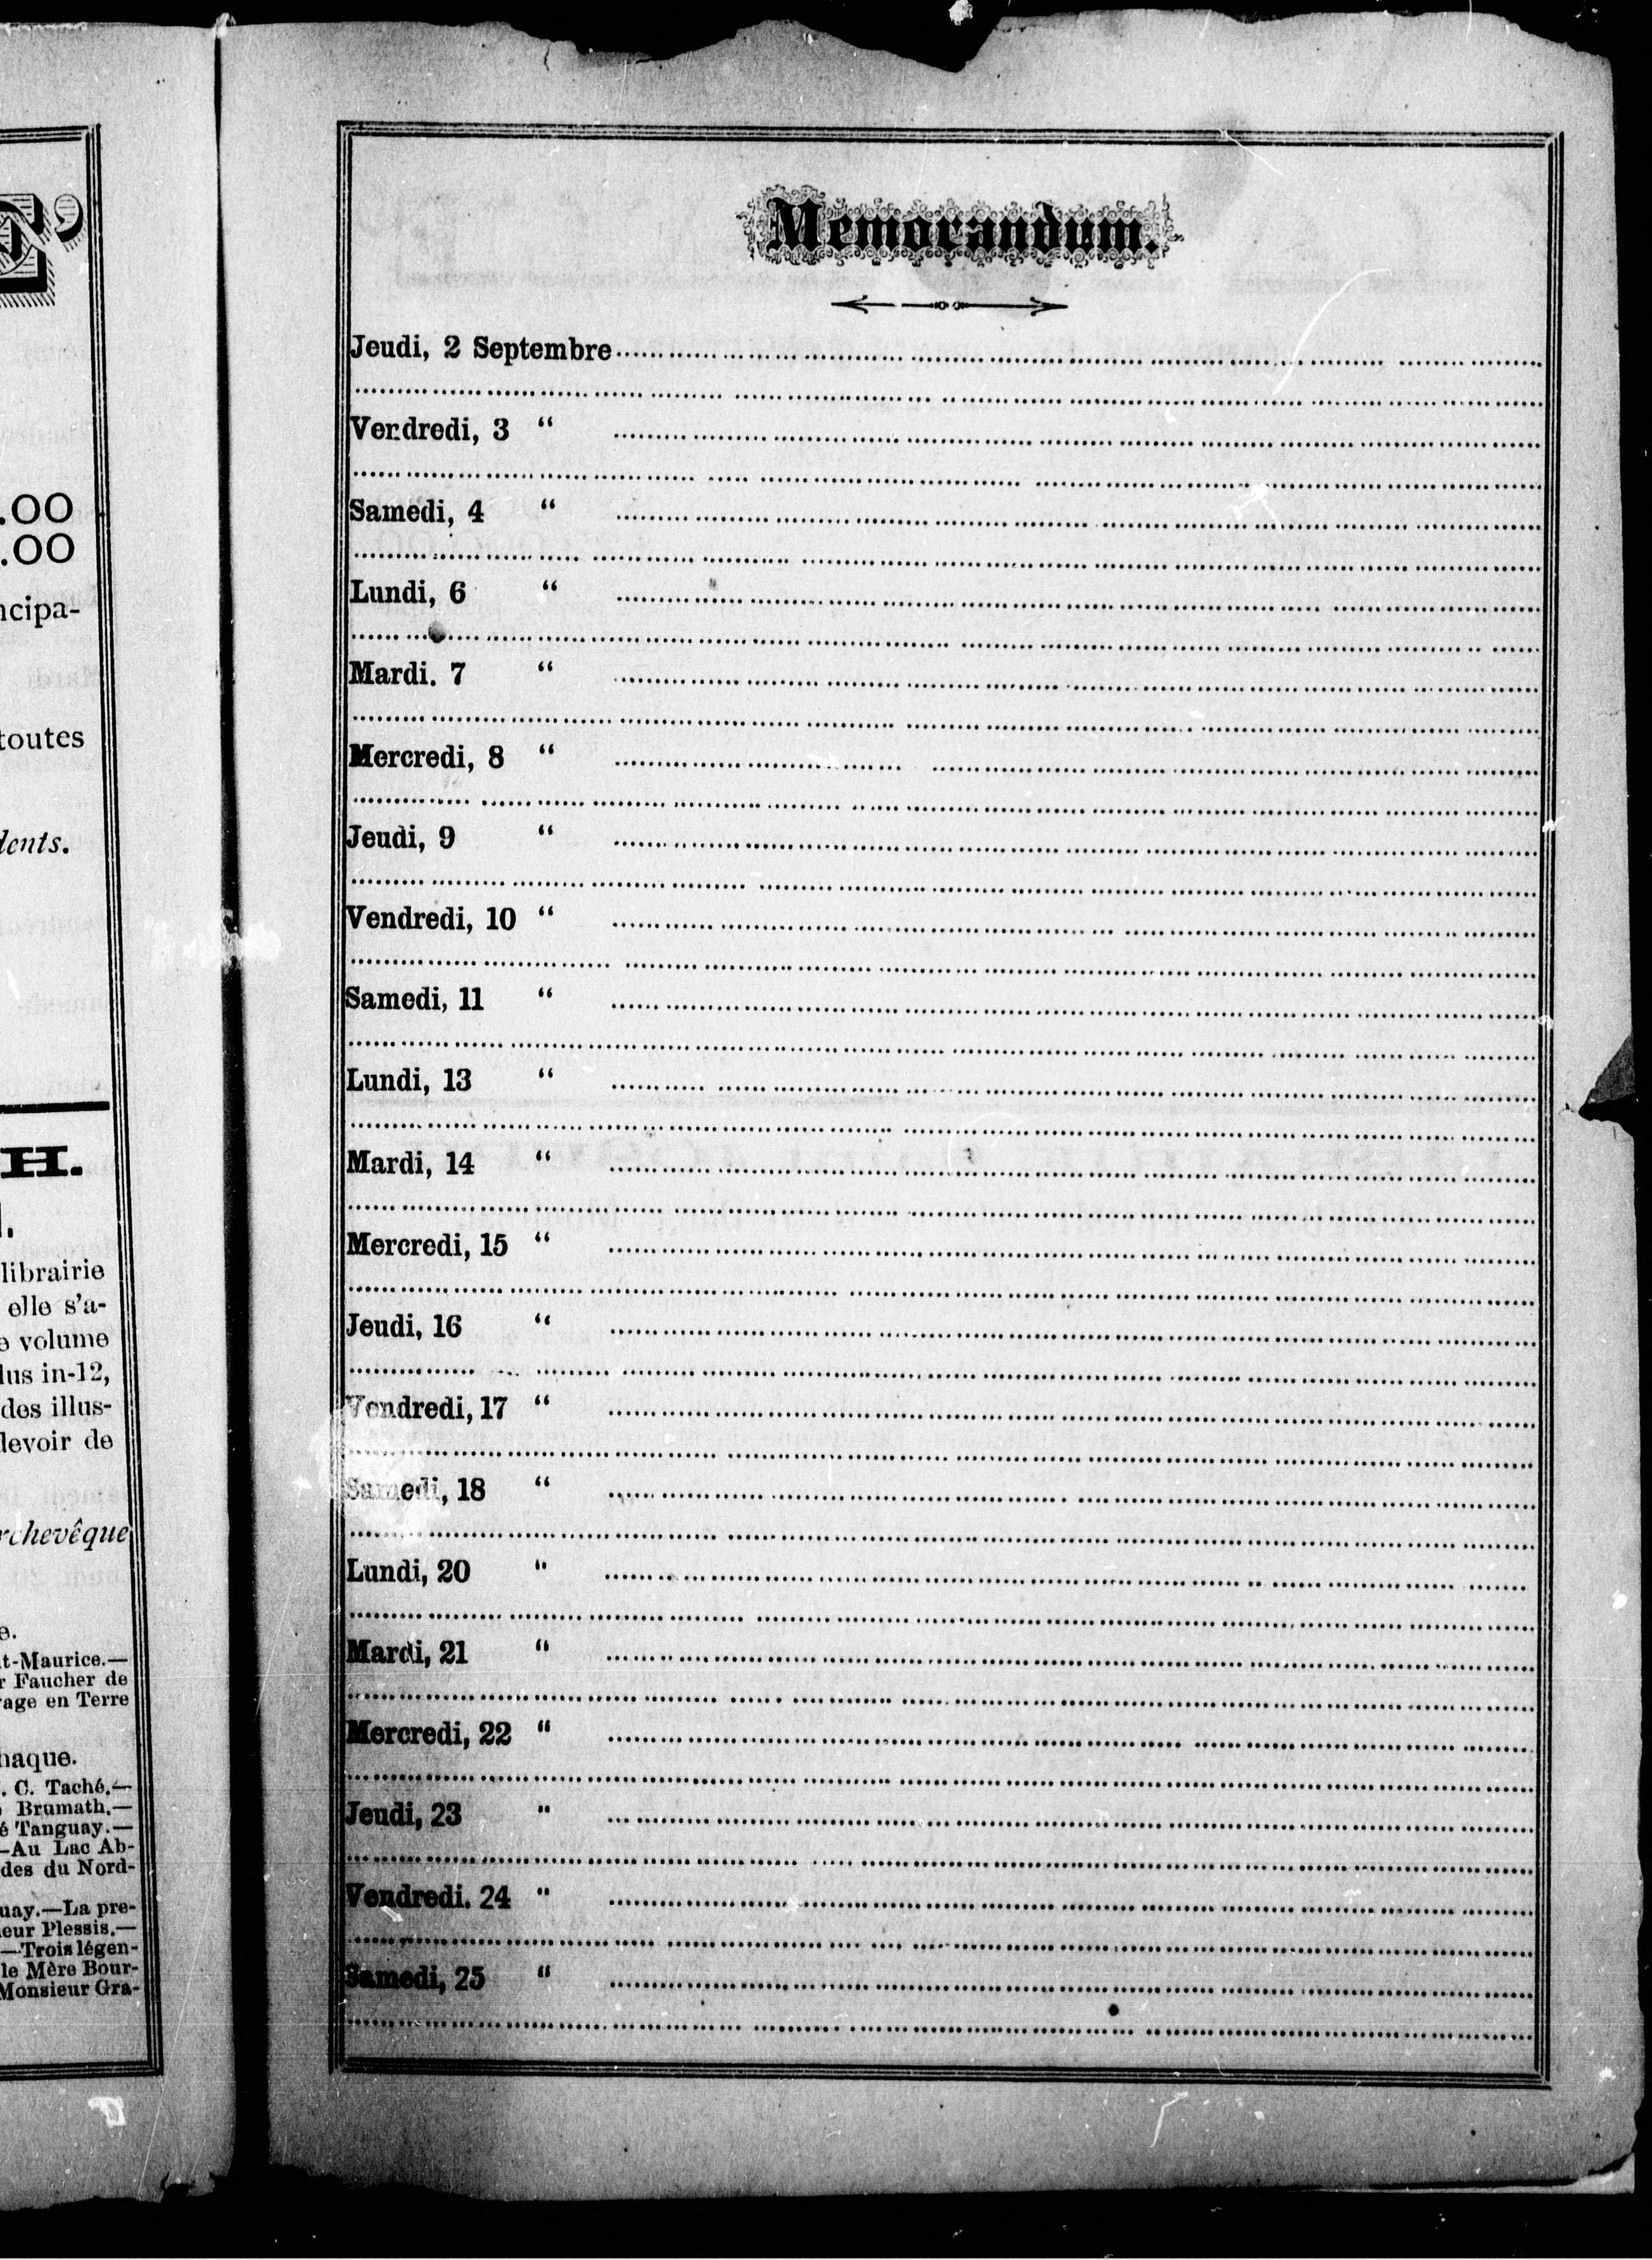 .00
.00
ncipa-
toutes
dents.
H.
librairie
elle s'a-
volume
lus in-12,
des illus-
devoir de
rchevêque
e.
t-Maurice.—
r Faucher de
age en Terre
haque.
. C. Taché.—
Brumath.—
é Tanguay.—
—Au Lac Ab-
des du Nord-
uay.—La pre-
eur Plessis.—
—Trois légen-
le Mère Bour-
Monsieur Gra-
Memorandum.
Jeudi, 2 Septembre
Vendredi, 3 “
Samedi, 4 “
Lundi, 6 “
Mardi. 7 “
Mercredi, 8 “
Jeudi, 9 “
Vendredi, 10 “
Samedi, 11 “
Lundi, 13 “
Mardi, 14 “
Mercredi, 15 “
Jeudi, 16 “
Vendredi, 17 “
Samedi, 18 “
Lundi, 20 "
Mardi, 21 “
Mercredi, 22 “
Jeudi, 23 "
Vendredi. 24 "
Samedi, 25 “